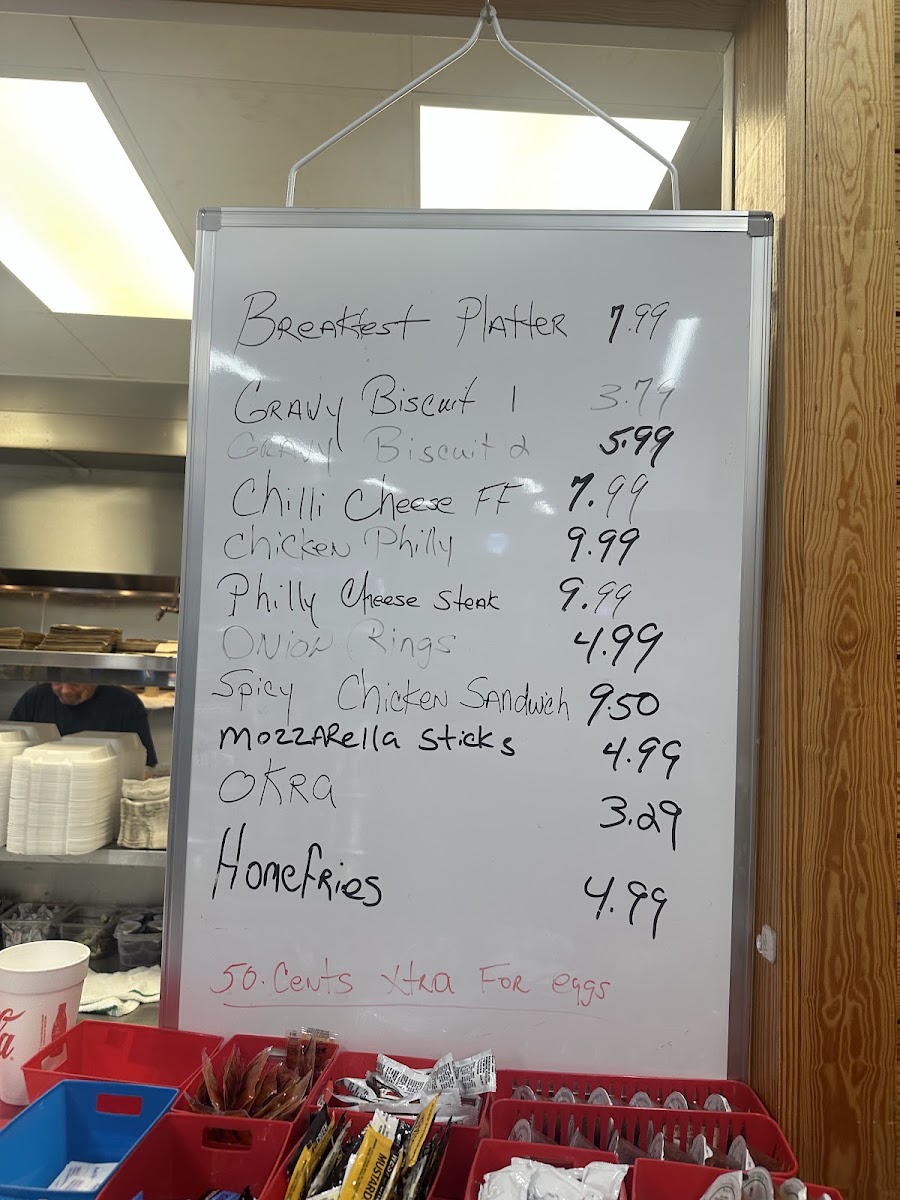 Breakfest Platter 7.99
Gravy Biscuit 1 3.79
Gravy Biscuit 2 5.99
Chilli Cheese FF 7.99
Chicken Philly 9.99
Philly Cheese Steak 9.99
Onion Rings 4.99
Spicy Chicken Sandwich 9.50
Mozzarella Sticks 4.99
Okra 3.29
Homefries 4.99
50. Cents Xtra For eggs
MUSTARD